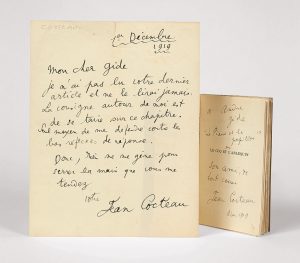 1er Décembre
1919
Mon cher Gide
je n'ai pas lu votre dernier
article et ne le lirai jamais.
La consigne autour de moi est
de se taire sur ce chapitre.
moyen de me défendre contre les
réflexes de réponse.
Donc, rien ne me gêne pour
serrer la main que vous me
tendez
votre
Jean Cocteau
à André
Gide
LE COQ ET L'ARLEQUIN
son ami, de
tout cœur
Jean Cocteau
1919